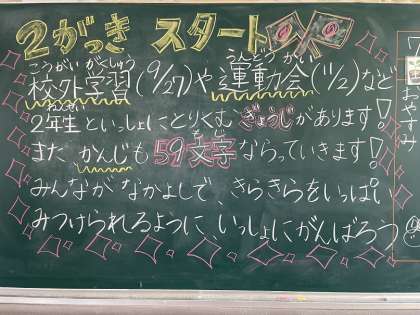 2がっき スタート
こうがい がくしゅう うんどう かい
校外学習(9/27)や 運動会(11/2)など
ねんせい
2年生といっしょにとりくむ ぎょうじがあります!
もじ
また かんじも 59文字 ならっていきます!
みんながなかよしで、きらきらをいっぱい
みつけられるように、いっしょにがんばろう